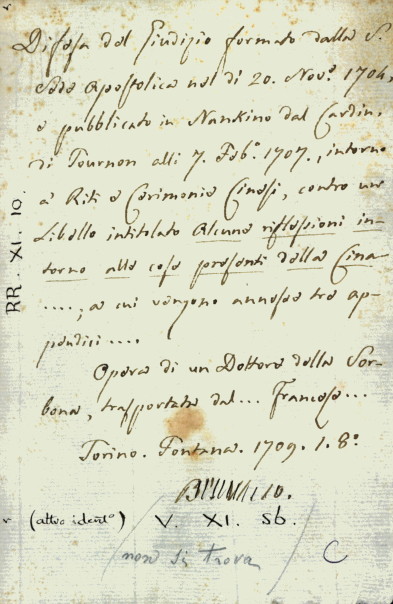 Difesa del Giudizio formato dalla S.
Sede Apostolica nel di 20. Nov.e 1704,
e pubblicato in Nankino dal Cardin.
di Tournon alli 7. Feb.o 1707., intorno
a' Riti e Cerimonie Cinesi, contro un
Libello intitolato Alcune riflessioni in-
torno alle cose presenti della Cina
...., a cui vengono annesse tre ap-
pendici....
Opera di un Dottore della Sor-
bona, trasportata dal... Francese...
Torino. Fontana. 1709. 1. 8.o
(altro ident.o) V. XI. 56.
non si trova
C
RR. XI. 10.